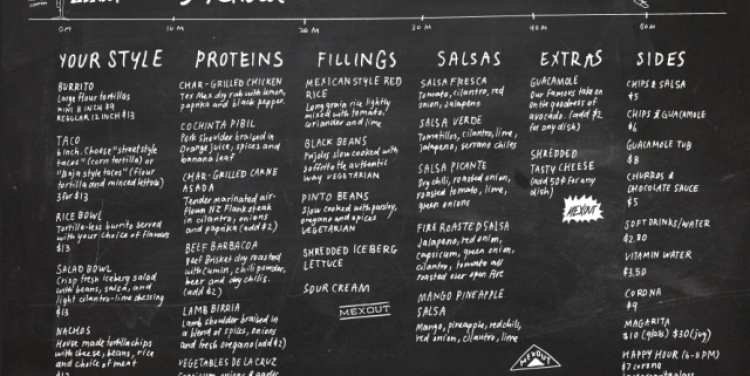 0M 10 M 20 M 30 M 40 M 50 M
YOUR STYLE
BURRITO
Large flour tortillas
MINI 8 INCH $9
REGULAR 12 INCH $13
TACO
6 inch. Choose "street style
tacos" (corn tortilla) or
"Baja style tacos" (flour
tortilla and minced lettuce)
3 for $13
RICE BOWL
Tortilla-less burrito served
with your choice of flavours
$13
SALAD BOWL
Crisp fresh iceberg salad
with beans, salsa, and
light cilantro-lime dressing
$13
NACHOS
House made tortilla chips
with cheese, beans, rice
and choice of meat
PROTEINS
CHAR-GRILLED CHICKEN
Tex Mex dry rub with lemon,
paprika and black pepper.
COCHINTA PIBIL
Pork shoulder braised in
Orange juice, spices and
banana leaf
CHAR-GRILLED CARNE
ASADA
Tender marinated air-
flown NZ Flank steak
in cilantro, onions
and paprika (add $2)
BEEF BARBACOA
Beef Brisket dry roasted
with cumin, chili powder,
beer and dry chilis.
(add $2)
LAMB BIRRIA
Lamb shoulder braised in
a blend of spices, onions
and fresh oregano (add $2)
VEGETABLES DE LA CRUZ
FILLINGS
MEXICAN STYLE RED
RICE
Long grain rice lightly
mixed with tomato,
Coriander and lime
BLACK BEANS
Frijoles slow cooked with
soffrito the authentic
way VEGETARIAN
PINTO BEANS
Slow cooked with parsley,
oregano and spices
VEGETARIAN
SHREDDED ICEBERG
LETTUCE
SOUR CREAM
MEXOUT
SALSAS
SALSA FRESCA
Tomato, cilantro, red
onion, Jalapeno
SALSA VERDE
Tomatillos, cilantro, lime,
jalapeno, serrano chiles
SALSA PICANTE
Dry chili, roasted onion,
roasted tomato, lime,
green onions
FIRE ROASTED SALSA
Jalapeno, red onion,
capsicum, green onion,
cilantro, tomato all
roasted over open fire
MANGO PINEAPPLE
SALSA
Mango, pineapple, red chili,
red onion, cilantro, lime
EXTRAS
GUACAMOLE
Our famous take on
the goodness of
avocado. (add $2
for any dish)
SHREDDED
TASTY CHEESE
(add 50¢ for any
dish)
MEXOUT
MEXOUT
SIDES
CHIPS & SALSA
$5
CHIPS & GUACAMOLE
$6
GUACAMOLE TUB
$8
CHURROS &
CHOCOLATE SAUCE
$5
SOFT DRINKS/WATER
$2.80
VITAMIN WATER
$3.50
CORONA
$9
MAGARITA
$10 (glass) $30 (jug)
HAPPY HOUR (6-8PM)
$7 corona